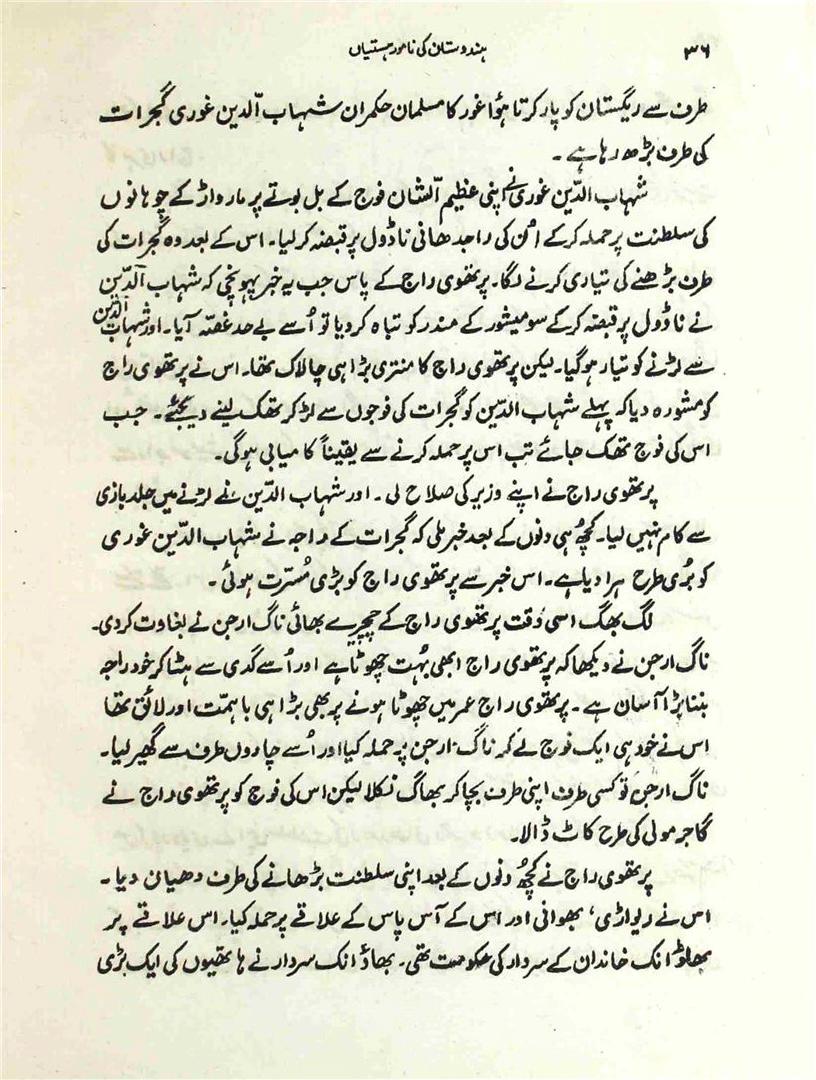 ۳۶
ہندوستان کی نامور ہستیاں
طرف سے ریگستان کو پار کرتا ہؤا غور کا مسلمان حکمران شہاب الّدین غوری گجرات
کی طرف بڑھ رہا ہے۔
شہاب الدّین غوری نے اپنی عظیم الّشان فوج کے بل بوتے پر مارواڑ کے چوہانوں
کی سلطنت پر حملہ کرکے اُن کی راجدھانی ناڈول پر قبضہ کر لیا۔ اس کے بعد وہ گجرات کی
طرف بڑھنے کی تیاری کرنے لگا۔ پرتھوی راج کے پاس جب یہ خبر پہونچی کہ شہاب الّدین
نے ناڈول پر قبضہ کرکے سومیشور کے مندر کو تباہ کر دیا تو اُسے بے حد غصّہ آیا۔ اور شہاب الدّین
سے لڑنے کو تیار ہو گیا۔ لیکن پرتھوی راج کا منتری بڑا ہی چالاک تھا۔ اس نے پرتھوی راج
کو مشورہ دیا کہ پہلے شہاب الدّین کو گجرات کی فوجوں سے لڑ کر تھک لینے دیجئے۔ جب
اس کی فوج تھک جائے تب اس پر حملہ کرنے سے یقیناً کامیابی ہوگی۔
پرتھوی راج نے اپنے وزیر کی صلاح لی۔ اور شہاب الدّین نے لڑنے میں جلد بازی
سے کام نہیں لیا۔ کچھ ہی دنوں کے بعد خبر ملی کہ گجرات کے راجہ نے شہاب الدّین غوری
کو بُری طرح ہرا دیا ہے۔ اس خبر سے پرتھوی راج کو بڑی مُسرّت ہوئی۔
لگ بھگ اسی وقت پرتھوی راج کے چچیرے بھائی ناگ ارجن نے بغاوت کر دی۔
ناگ ارجن نے دیکھا کہ پرتھوی راج ابھی بُہت چھوٹا ہے اور اُسے گدی سے ہٹا کر خود راجہ
بننا بڑا آسان ہے۔ پرتھوی راج عمر میں چھوٹا ہونے پر بھی بڑا ہی باہمّت اور لائق تھا
اس نے خود ہی ایک فوج لے کر ناگ ارجن پر حملہ کیا اور اُسے چاروں طرف سے گھیر لیا۔
ناگ ارجن تو کسی طرف اپنی طرف بچا کر بھاگ نکلا لیکن اس کی فوج کو پرتھوی راج نے
گاجر مولی کی طرح کاٹ ڈالا۔
پرتھوی راج نے کچھ دنوں کے بعد اپنی سلطنت بڑھانے کی طرف دھیان دیا۔
اس نے ریواڑی، بھوانی اور اس کے آس پاس کے علاقے پر حملہ کیا۔ اس علاقے پر
بھاڈانک خاندان کے سردار کی حکومت تھی۔ بھاڈانک سردار نے ہاتھیوں کی ایک بڑی